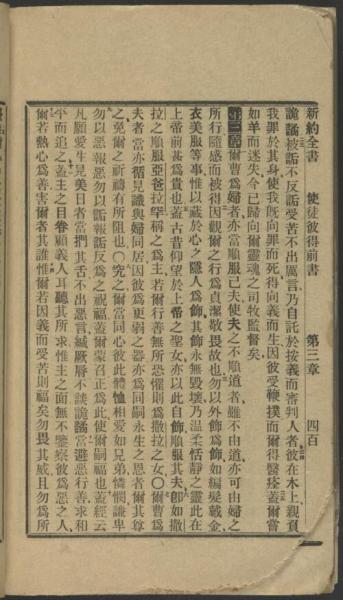 新約全書 使徒彼得前書 第三章 四百
詭譎被詬不反詬受苦不出厲言乃自託於按義而審判人者彼在木上親負
我罪於其身使我旣向罪而死得向義而生因彼受鞭撲而爾得醫痊蓋爾嘗
如羊而迷失今已歸向爾靈魂之司牧監督矣
第三章爾曹爲婦者亦當順服己夫使夫之不順道者雖不由道亦可由婦之
所行隨感而被得因觀爾之行爲貞潔敬畏故也勿以外飾爲飾如編髮戴金
衣美服等事惟以藏於心之隱人爲飾其飾永無毀壞乃溫柔恬靜之靈此在
上帝前甚爲貴也蓋古昔仰望於上帝之聖女亦以此自飾順服其夫卽如撒
拉之順服亞伯拉罕稱之爲主若爾行善無所恐懼則爲撒拉之女〇爾曹爲
夫者當亦循見識與婦同居因彼爲更弱之器亦爲同嗣永生之恩者爾其尊
之免爾之祈禱有所阻也〇究之爾當同心彼此體恤相愛如兄弟憐憫謙卑
勿以惡報惡勿以詬報詬反爲之祝福蓋爾蒙召正爲此使爾嗣福也蓋經云
凡願愛生見美日者當捫其舌不出惡言緘厥脣不談詭譎當避惡行善求和
平而追之蓋主之目眷顧義人耳聽其所求惟主之面無不鑒察彼爲惡之人
爾若熱心爲善害爾者其誰惟爾若因義而受苦則福矣勿畏其威且勿爲所